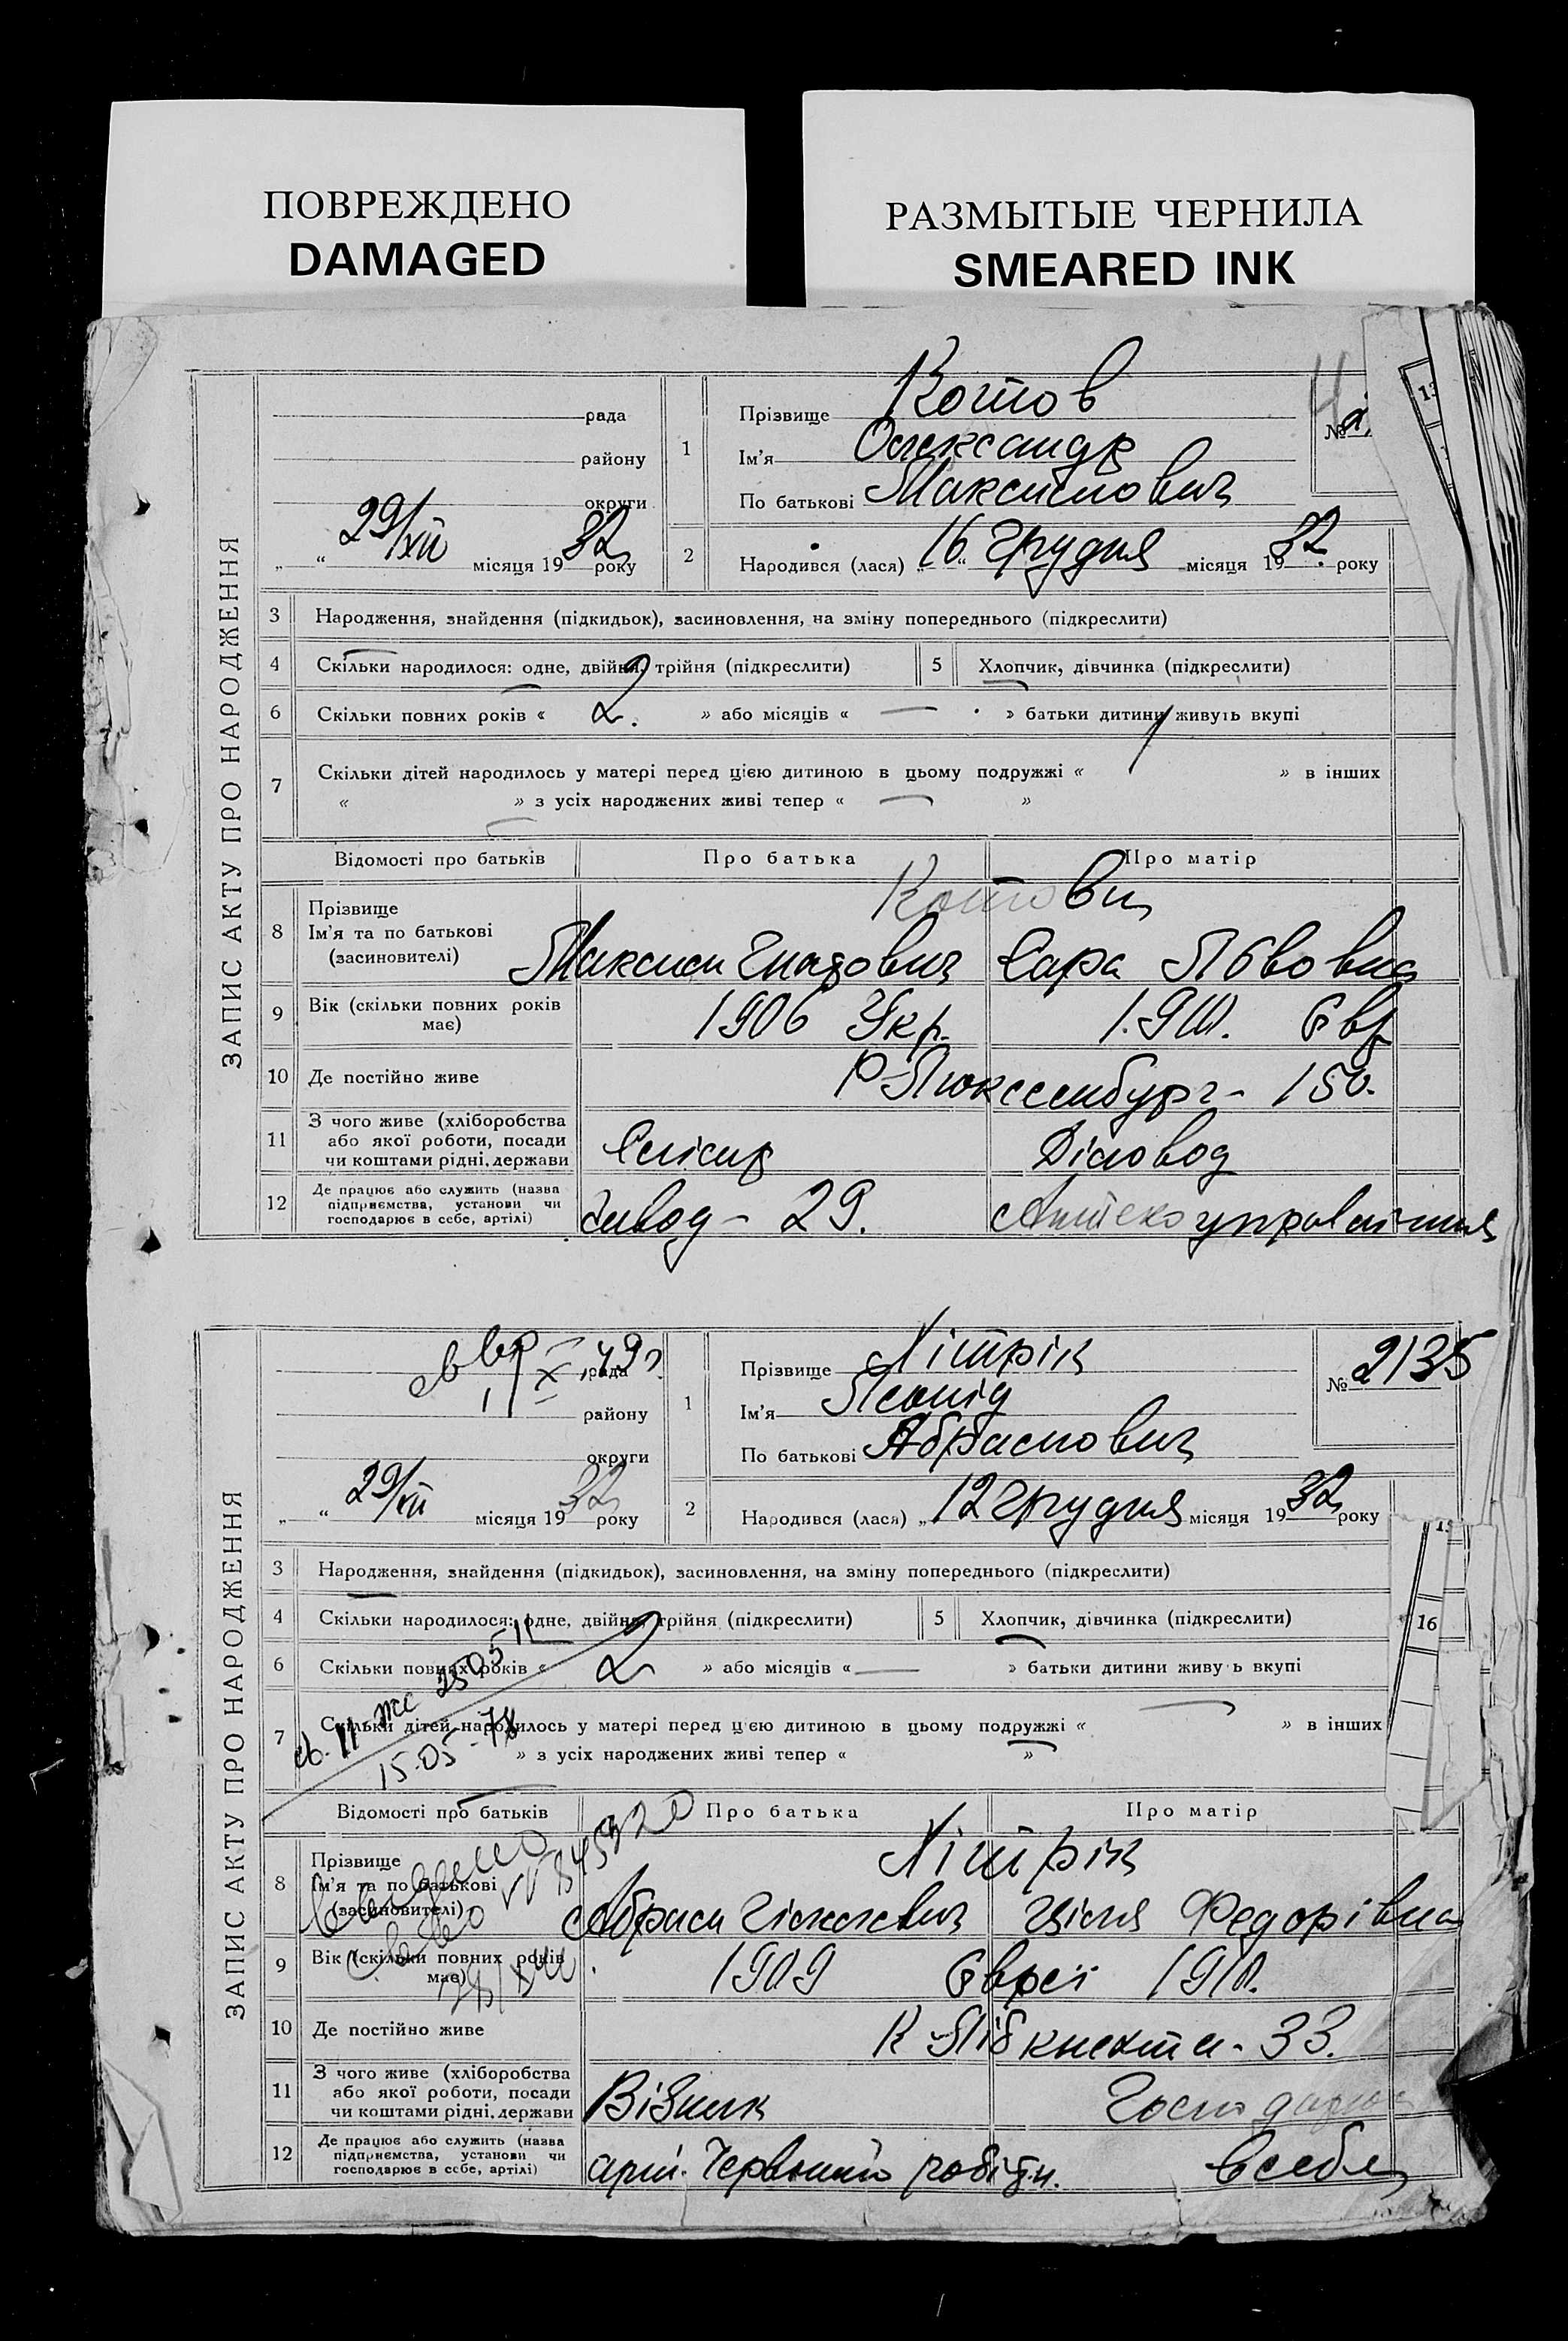 ПОВРЕЖДЕНО
DAMAGED
РАЗМЫТЫЕ ЧЕРНИЛА
SMEARED INK
ЗАПИС АКТУ ПРО НАРОДЖЕННЯ
рада
району
округи
„ “ 29/XII місяця 1932 року
1
Прізвище Котов
Ім'я Олександр
По батькові Максимович
№
2
Народився (лася) „16“ грудня місяця 1932 року
3 Народження, знайдення (підкидьок), засиновлення, на зміну попереднього (підкреслити)
4 Скільки народилося: одне, двійня, трійня (підкреслити)
5 Хлопчик, дівчинка (підкреслити)
6 Скільки повних років « 2. » або місяців « — » батьки дитини живуть вкупі
7 Скільки дітей народилось у матері перед цією дитиною в цьому подружжі « » в інших
« » з усіх народжених живі тепер « — »
Відомості про батьків Про батька Про матір
8 Прізвище Ім'я та по батькові (засиновителі)
Котови
Максим Гнатович Сара Львовна
9 Вік (скільки повних років має) 1906 Укр. 1910. Євр
10 Де постійно живе Р Люксембург - 150.
11 З чого живе (хліборобства або якої роботи, посади чи коштами рідні, держави Слісар Діловод
12 Де працює або служить (назва підприємства, установи чи господарює в себе, артілі) Завод - 29. Аптекоуправління
ЗАПИС АКТУ ПРО НАРОДЖЕННЯ
рада
району
округи
„ “ 29/XII місяця 1932 року
1
Прізвище Хітрік
Ім'я Леонід
По батькові Абрамович
№ 2135
2
Народився (лася) „12 грудня місяця 1932 року
3 Народження, знайдення (підкидьок), засиновлення, на зміну попереднього (підкреслити)
4 Скільки народилося: одне, двійня, трійня (підкреслити)
5 Хлопчик, дівчинка (підкреслити)
6 Скільки повних років « 2 » або місяців « — » батьки дитини живу ь вкупі
7 Скільки дітей народилось у матері перед цією дитиною в цьому подружжі « » в інших
» з усіх народжених живі тепер « »
15.05-78
Відомості про батьків Про батька Про матір
8 Прізвище Ім'я та по батькові (засиновителі)
Хітрік
Абрам Ціля Федорівна
9 Вік (скільки повних років має) 1909 Євреї 1910.
10 Де постійно живе К Лібкнехта - 33.
11 З чого живе (хліборобства або якої роботи, посади чи коштами рідні, держави Візник Господарює
12 Де працює або служить (назва підприємства, установи чи господарює в себе, артілі) арт. Червоний робітн. в себе
16